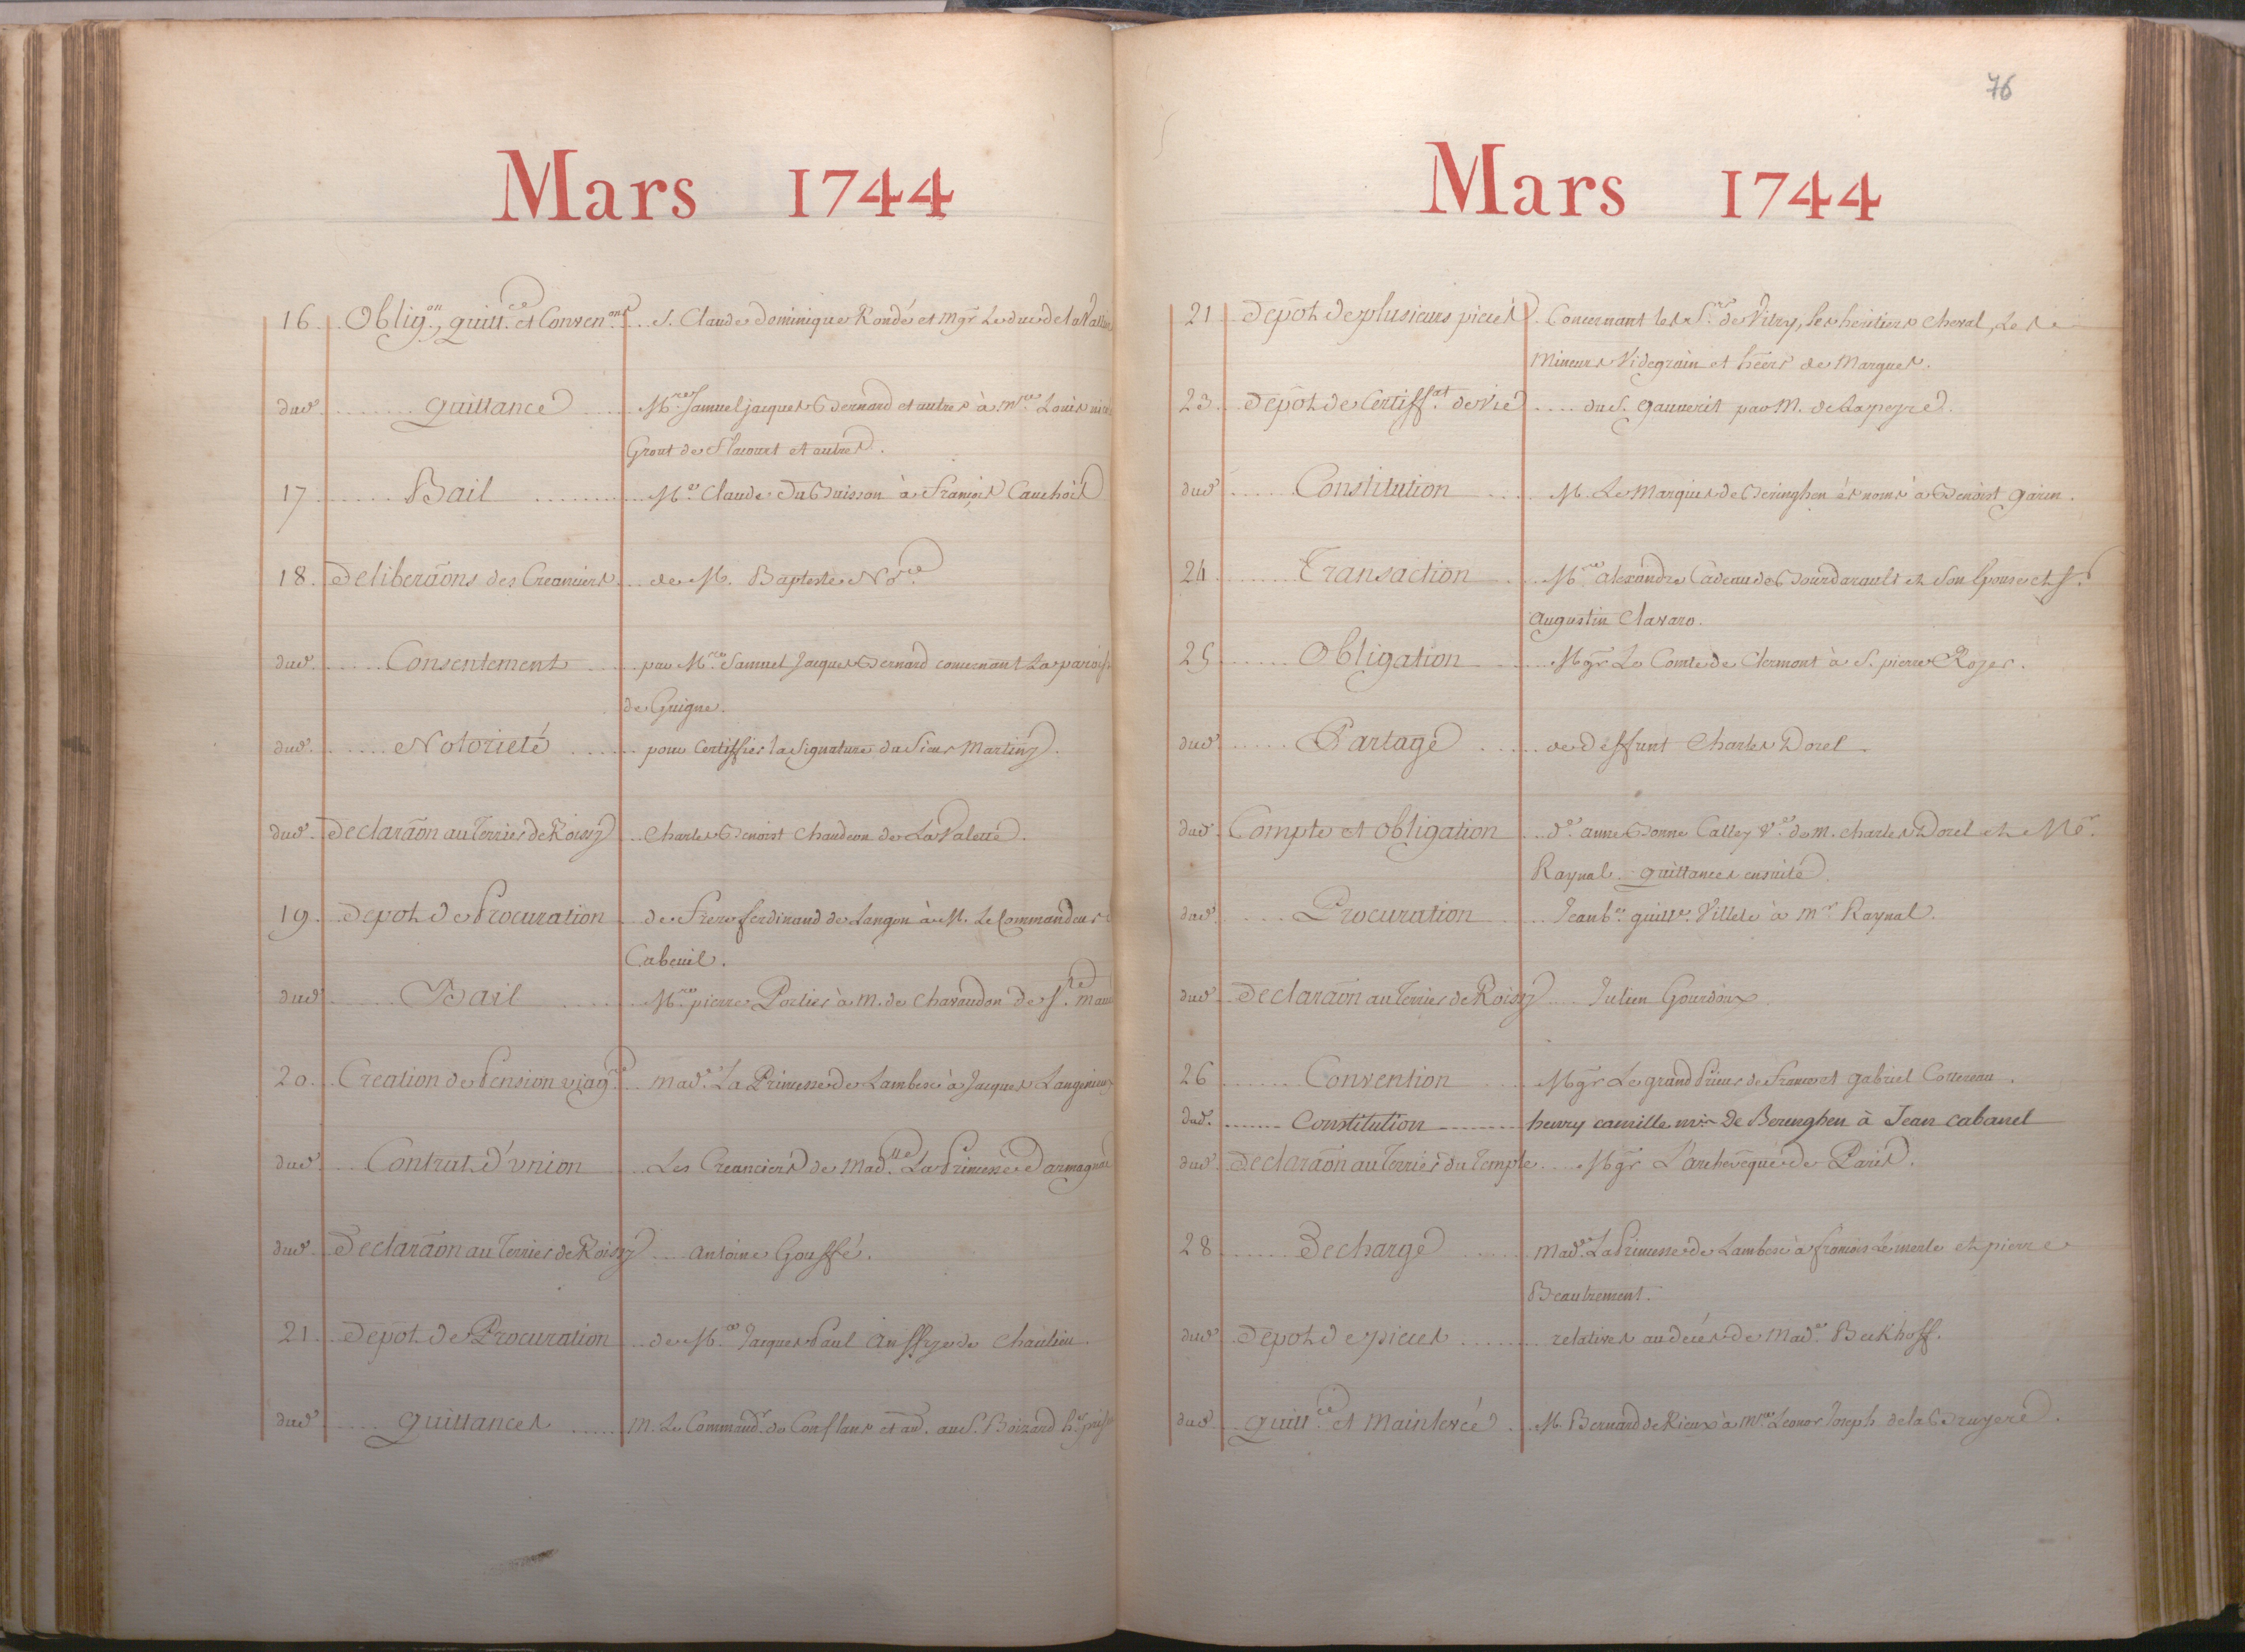 Mars 1744
16. Oblig.on, quitt.ce et Conven.ons S. Claude Dominique Rondé et Mgr. Le duc de la Valliere
dud. Quittance Mre. Samuel jacques Bernard et autres à Mre. Louis
Grout de Flacourt et autres.
17 Bail Me. Claude Du Buisson à François Cauchois
18. Deliberãons des Creanciers de M. Bapteste No.re
dud. Consentement par Mre. Samuel Jacques Bernard concernant La paroisse
de Guigne.
dud. Notorieté pour Certiffier la Signature du Sieur Martiny.
dud. Declarãon au Terrier de Roissy Charles Benoist Chaudeon de La Valette.
19. Depot de Procuration de Frere ferdinand de Langon à M. Le Commandeur de
Cabeuil.
dud. Bail Mre. pierre Portier à M. de Chavaudon de Ste. Maure
20. Creation de Pension viag.re Made. La Princesse de Lambesc à Jacques Langenieux
dud. Contrat d'union Les Creanciers de Mad.lle La Princesse Darmagnac
dud. Declarãon au Terrier de Roissy Antoine Gouffé.
21. Depot de Procuration de Mre. Jacques Paul Auffrye de Chaulieu.
dud. Quittances M. Le Command.r de Conflans et au. au S. Boizard h.er
76
Mars 1744
21 Depot de plusieurs pieces Concernant les Srs. de Vitry, les heritiers Cheval, Les
Mineurs Videgrain et heers de Marguet.
23. Depot de Certiff.at de vie du S. Gauverit par M. de Lapeyre.
dud. Constitution M. Le Marquis de Beringhen és noms à Benoist Garin.
24. Transaction Mre. Alexandre Cadeau de Bourdarault et Son Epouse et S.
Augustin Clavaro.
25 Obligation Mgr. Le Comte de Clermont à S. pierre Rozer.
dud. Partage de deffunt Charles Dorel.
dud. Compte et obligation De. anne Bonne Calley Ve. de M. Charles Dorel et Mr.
Raynal. Quittances ensuite.
dud. Procuration Jean b.te guill.e Villele à Mr. Raynal.
dud. Declarãon au Terrier de Roissy Julien Gourdoux
26 Convention Mgr. Le grand Prieur de France et Gabriel Cottereau.
dud. Constitution henry camille mis de Berenghen à Jean cabanel
dud. Declarãon au Terrier du Temple Mgr. L'archevêque de Paris.
28 Decharge Made. La Princesse de Lambesc à françois Lemerle et pierre
Beautrement.
dud. Depot de pieces relatives au decés de Made. Beekhoff.
dud. Quitt.ce et Mainlevée M. Bernard de Rieux à Mre. Leonor Joseph de la Bruyere.